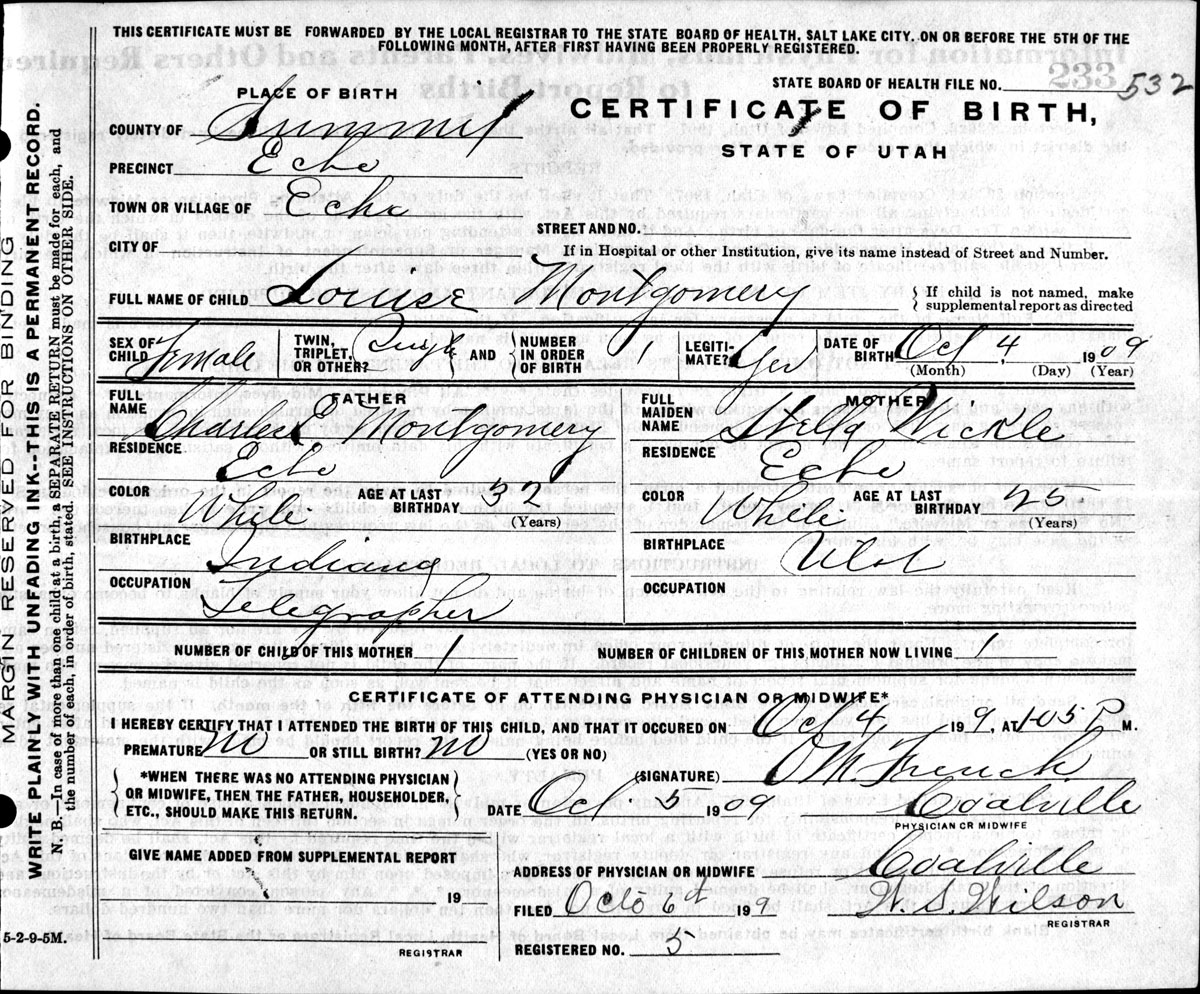 THIS CERTIFICATE MUST BE FORWARDED BY THE LOCAL REGISTRAR TO THE STATE BOARD OF HEALTH, SALT LAKE CITY, ON OR BEFORE THE 5TH OF THE
FOLLOWING MONTH, AFTER FIRST HAVING BEEN PROPERLY REGISTERED.
233
STATE BOARD OF HEALTH FILE NO. 532
PLACE OF BIRTH
CERTIFICATE OF BIRTH,
STATE OF UTAH
COUNTY OF Summit
PRECINCT Echo
TOWN OR VILLAGE OF Echo
STREET AND NO.
CITY OF
If in Hospital or other Institution, give its name instead of Street and Number.
FULL NAME OF CHILD Louise Montgomery { If child is not named, make supplemental report as directed
SEX OF CHILD Female
TWIN, TRIPLET, OR OTHER?
AND { NUMBER IN ORDER OF BIRTH
LEGITIMATE? Yes
DATE OF BIRTH Oct 4, 1909
(Month) (Day) (Year)
FATHER
FULL NAME Charles Montgomery
RESIDENCE Echo
COLOR White AGE AT LAST BIRTHDAY 32
(Years)
BIRTHPLACE Indiana
OCCUPATION Telegrapher
MOTHER
FULL MAIDEN NAME Stella Rickle
RESIDENCE Echo
COLOR White AGE AT LAST BIRTHDAY 25
(Years)
BIRTHPLACE Utah
OCCUPATION
NUMBER OF CHILD OF THIS MOTHER 1 NUMBER OF CHILDREN OF THIS MOTHER NOW LIVING 1
CERTIFICATE OF ATTENDING PHYSICIAN OR MIDWIFE*
I HEREBY CERTIFY THAT I ATTENDED THE BIRTH OF THIS CHILD, AND THAT IT OCCURED ON Oct 4, 1909, AT 1.05 P M.
PREMATURE No OR STILL BIRTH? No (YES OR NO)
*WHEN THERE WAS NO ATTENDING PHYSICIAN
OR MIDWIFE, THEN THE FATHER, HOUSEHOLDER,
ETC., SHOULD MAKE THIS RETURN.
(SIGNATURE) O M French
DATE Oct 5 1909 Coalville
PHYSICIAN OR MIDWIFE
GIVE NAME ADDED FROM SUPPLEMENTAL REPORT
19
REGISTRAR
ADDRESS OF PHYSICIAN OR MIDWIFE Coalville
FILED Octo 6th 1909 W. S. Wilson
REGISTRAR
REGISTERED NO. 5
5-2-9-5M.
MARGIN RESERVED FOR BINDING
WRITE PLAINLY WITH UNFADING INK--THIS IS A PERMANENT RECORD.
N. B.--In case of more than one child at a birth, a SEPARATE RETURN must be made for each, and
the number of each, in order of birth, stated. SEE INSTRUCTIONS ON OTHER SIDE.